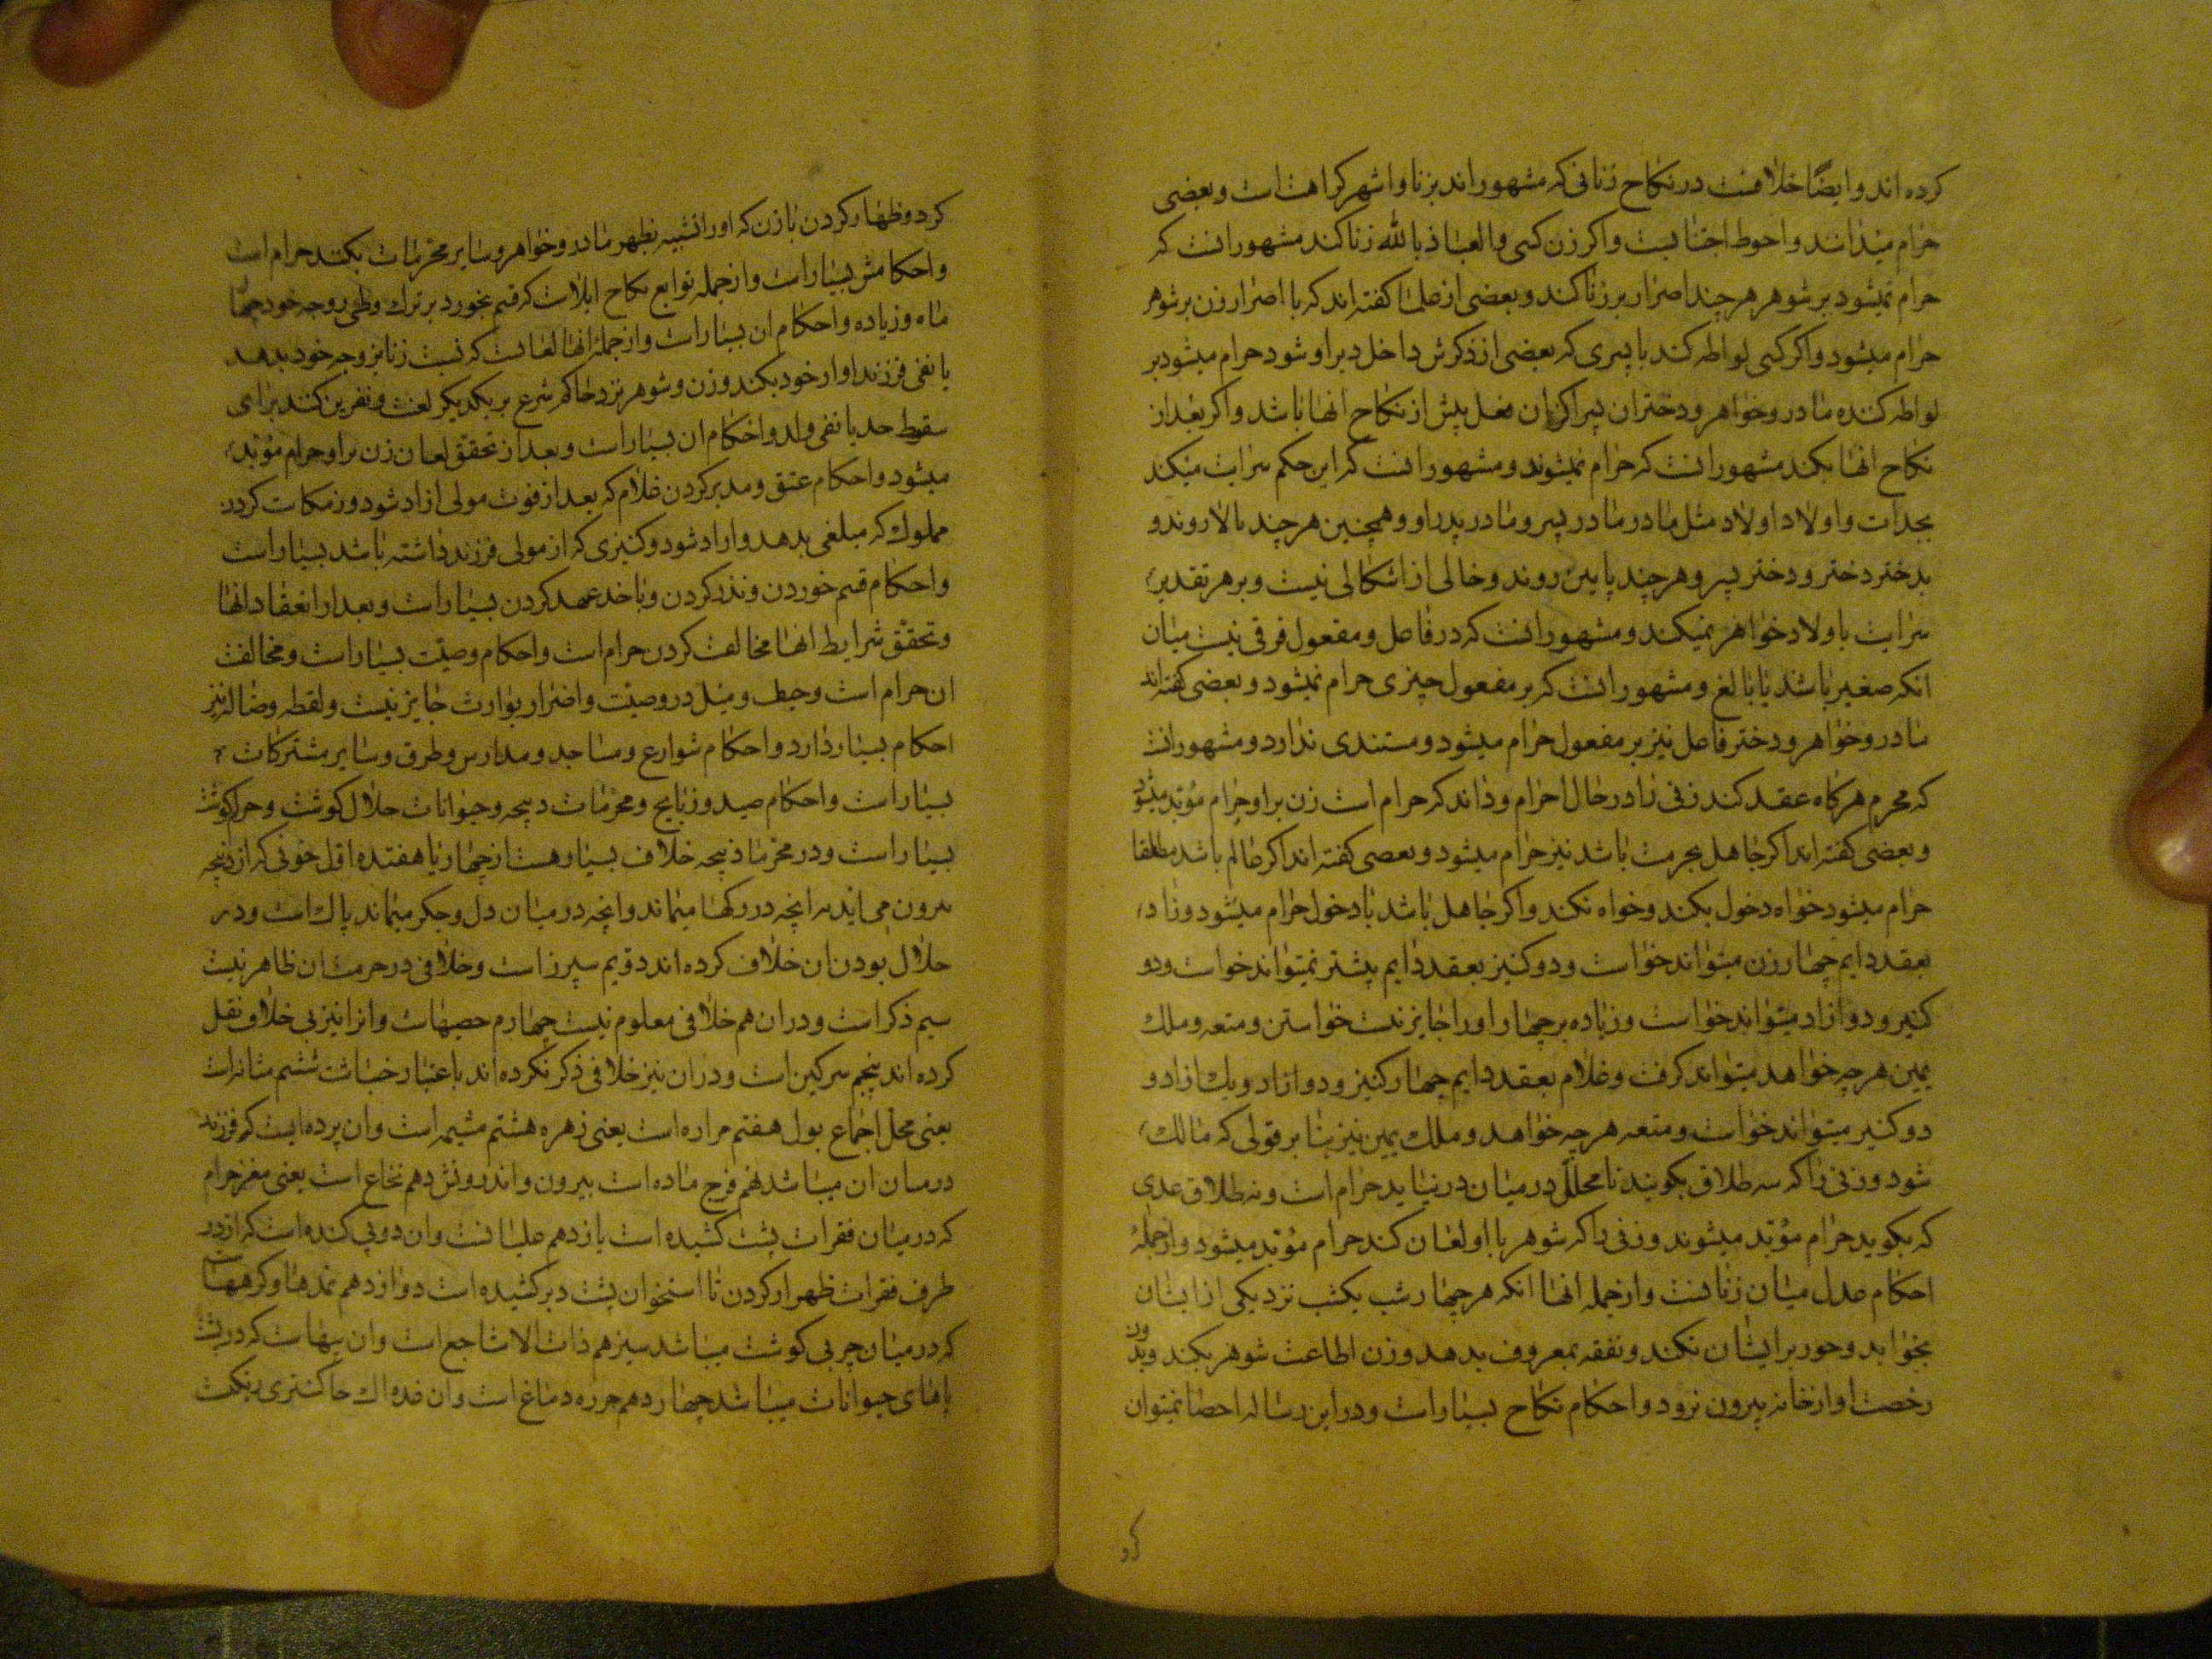 کرده اند و ایضًا خلافست در نکاح زنانی که مشهور اند بزنا و اشهر کراهت است و بعضی
حرام میدانند و احوط اجتنابست و اکر زن کسی و العیاذ بالله زنا کند مشهور انست که
حرام نمیشود بر شوهر هر چند اصرار بر زنا کند و بعضی از علما کفته اند که با اصرار زن بر شوهر
حرام میشود و اکر کسی لواطه کند با پسری که بعضی از ذکرش داخل دبر او شود حرام میشود بر
لواطه کننده مادر و خواهر و دختر ان پسر اکر ان فعل پیش از نکاح انها باشد و اکر بعد از
نکاح انها بکند مشهور انست که حرام نمیشوند و مشهور انست که این حکم سرایت میکند
بجدات و اولاد اولاد مثل مادر مادر پسر و مادر پدر او و همچنین هر چند بالا روند و
بدختر دختر و دختر پسر و هر چند پایین روند و خالی از اشکالی نیست و بر هر تقدیر
سرایت باولاد خواهر نمیکند و مشهور انست که در فاعل و مفعول فرقی نیست میان
انکه صغیر باشد یا بالغ و مشهور انست که بر مفعول چیزی حرام نمیشود و بعضی کفته اند
مادر و خواهر و دختر فاعل نیز بر مفعول حرام میشود و مستندی ندارد و مشهور انست
که محرم هرکاه عقد کند زنی را در حال احرام و داند که حرام است زن بر او حرام مؤبد میشود
و بعضی کفته اند اکر جاهل بحرمت باشد نیز حرام میشود و بعضی کفته اند اکر عالم باشد مطلقا
حرام میشود خواه دخول بکند و خواه نکند و اکر جاهل باشد با دخول حرام میشود و زاد
بعقد دایم چهار زن میتواند خواست و دو کنیز بعقد دایم پیشتر نمیتواند خواست و دو
کنیز و دو ازاد میتواند خواست و زیاده بر چهار او را جایز نیست خواستن و متعه و ملک
یمین هر چه خواهد میتواند کرفت و غلام بعقد دایم چهار کنیز و دو ازاد و یک ازاد و
دو کنیز میتواند خواست و متعه هر چه خواهد و ملک یمین نیز بنا بر قولی که مالک
شود و زنی را که سه طلاق بکویند تا محللّ در میان در نیاید حرام است و نه طلاق عدی
که بکوید حرام مؤبد میشوند و زنی را که شوهر با او لعان کند حرام مؤبد میشود و از جملهٔ
احکام عدل میان زنانست و از جمله انها انکه هر چهار شب یکشب نزدیکی از ایشان
بخوابد و جور بر ایشان نکند و نفقه بمعروف بدهد و زن اطاعت شوهر بکند و بدون
رخصت او از خانه بیرون نرود و احکام نکاح بسیار است و در این رساله احصا نمیتوان
کرد
کرد و ظهار کردن با زن که او را تشبیه بظهر مادر و خواهر و سایر محرّمات بکند حرام است
و احکامش بسیار است و از جمله توابع نکاح ایلاست که قسم بخورد بر ترک وطی زوجه خود چهار
ماه و زیاده و احکام ان بسیار است و از جملهٔ انها لعانست که نسبت زنا بزوجه خود بدهد
یا نفی فرزند او از خود بکند و زن و شوهر نزد حاکم شرع بر یکدیکر لعنت و نفرین کنند برای
سقوط حد یا نفی ولد و احکام ان بسیار است و بعد از تحقّق لعان زن بر او حرام مؤبد
میشود و احکام عتق و مدبر کردن غلام که بعد از فوت مولی ازاد شود و مکاتب کردن
مملوک که مبلغی بدهد و ازاد شود و کنیزی که از مولی فرزند داشته باشد بسیار است
و احکام قسم خوردن و نذر کردن و با خدا عهد کردن بسیار است و بعد از انعقاد انها
و تحقّق شرایط انها مخالفت کردن حرام است و احکام وصیّت بسیار است و مخالفت
ان حرام است و حیف و میل در وصیّت و اضرار بوارث جایز نیست و لقطه و ضاله نیز
احکام بسیار دارد و احکام شوارع و مساجد و مدارس و طرق و سایر مشترکات
بسیار است و احکام صید و ذبایح و محرّمات ذبیحه و حیوانات حلال کوشت و حرام کوشت
بسیار است و در محرّمات ذبیحه خلاف بسیار هست از چهار یا هفتده اول خونی که از ذبیحه
بیرون می اید نه انچه در رکها میماند و انچه در میان دل و جکر میماند پاک است و در
حلال بودن ان خلاف کرده اند دویم سپرز است و خلافی در حرمت ان ظاهر نیست
سیم ذکر است و در ان هم خلافی معلوم نیست چهارم خصیهاست و انرا نیز بی خلاف نقل
کرده اند پنجم سرکین است و در ان نیز خلافی ذکر نکرده اند باعتبار خباثت ششم مثانه است
یعنی محل اجتماع بول هفتم مراره است یعنی زهره هشتم مشیمه است و ان پرده ایست که فرزند
در میان ان میباشد نهم فرج ماده است بیرون و اندرونش دهم نخاع است یعنی مغز حرام
که در میان فقرات پشت کشیده است یازدهم علباست و ان دو پی کنده است که از دو
طرف فقرات ظهر از کردن تا استخوان پشت دبر کشیده است دوازدهم غدها و کرهها است
که در میان چربی کوشت میباشد سیزدهم ذات الاشاجع است و ان پیهاست که در پشت
پاهای حیوانات میباشد چهاردهم خرزه دماغ است و ان غده خاکستری رنکست